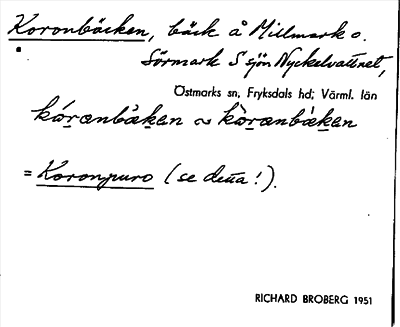 Koronbäcken, bäck å Millmark o.
Sörmark S sjön Nyckelvattnet,
Östmarks sn, Fryksdals hd, Värml. län
kóranbäkan ~ kòranbäkan
= Koronpuro (se dena!).
RICHARD BROBERG 1951